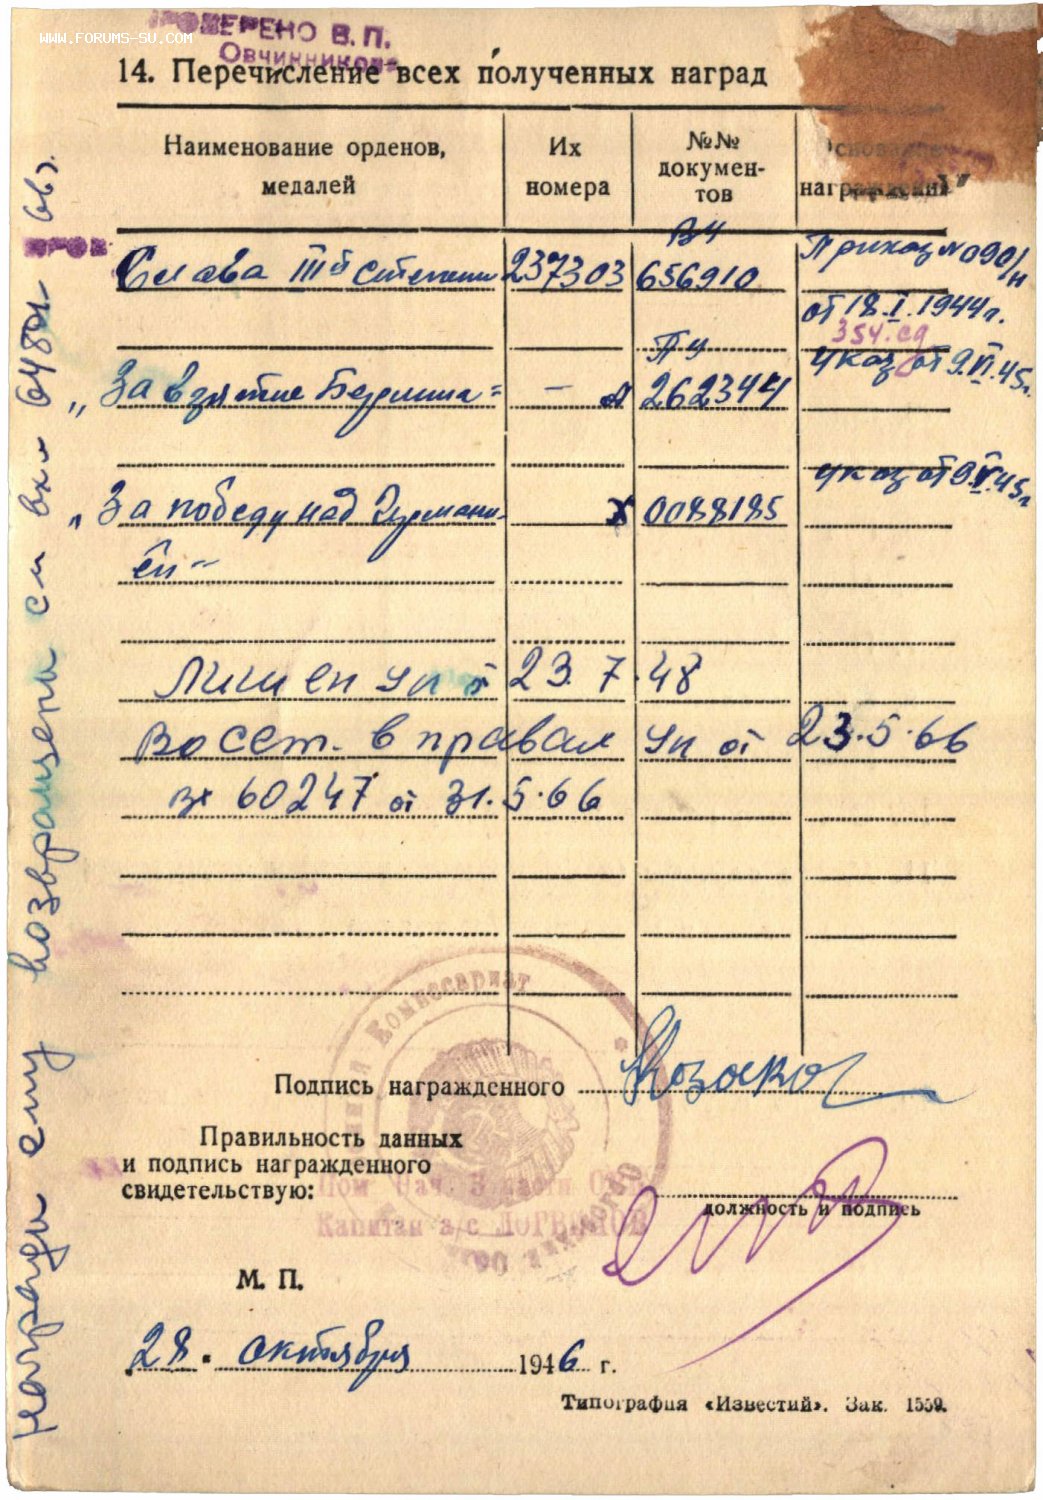 ПРОВЕРЕНО В.П.
WWW.FORUMS-SU.COM
Овчинников
14. Перечисление всех полученных наград
Наименование орденов, медалей
Их номера
№№ документов
Основание награждения
Слава IIIй степени 237303 ВЧ 656910 Приказ №090/н
от 18.I.1944г.
354.сд
"За взятие Берлина" — А ПУ 262344 Указ от 9.VI.45г.
"За победу над Германи- Х 0088185 Указ от 9.V.45г
ей"
Лишен Ук от 23.7.48
Восст. в правах Ук от 23.5.66
вх 60247 от 31.5.66
Награды ему возвращены см вх
Комиссариат
Подпись награжденного
Правильность данных
и подпись награжденного
свидетельствую:
Пом. Нач. 3 части
Капитан а/с
должность и подпись
М. П.
28. октября 1946 г.
Типография «Известий». Зак. 1559.